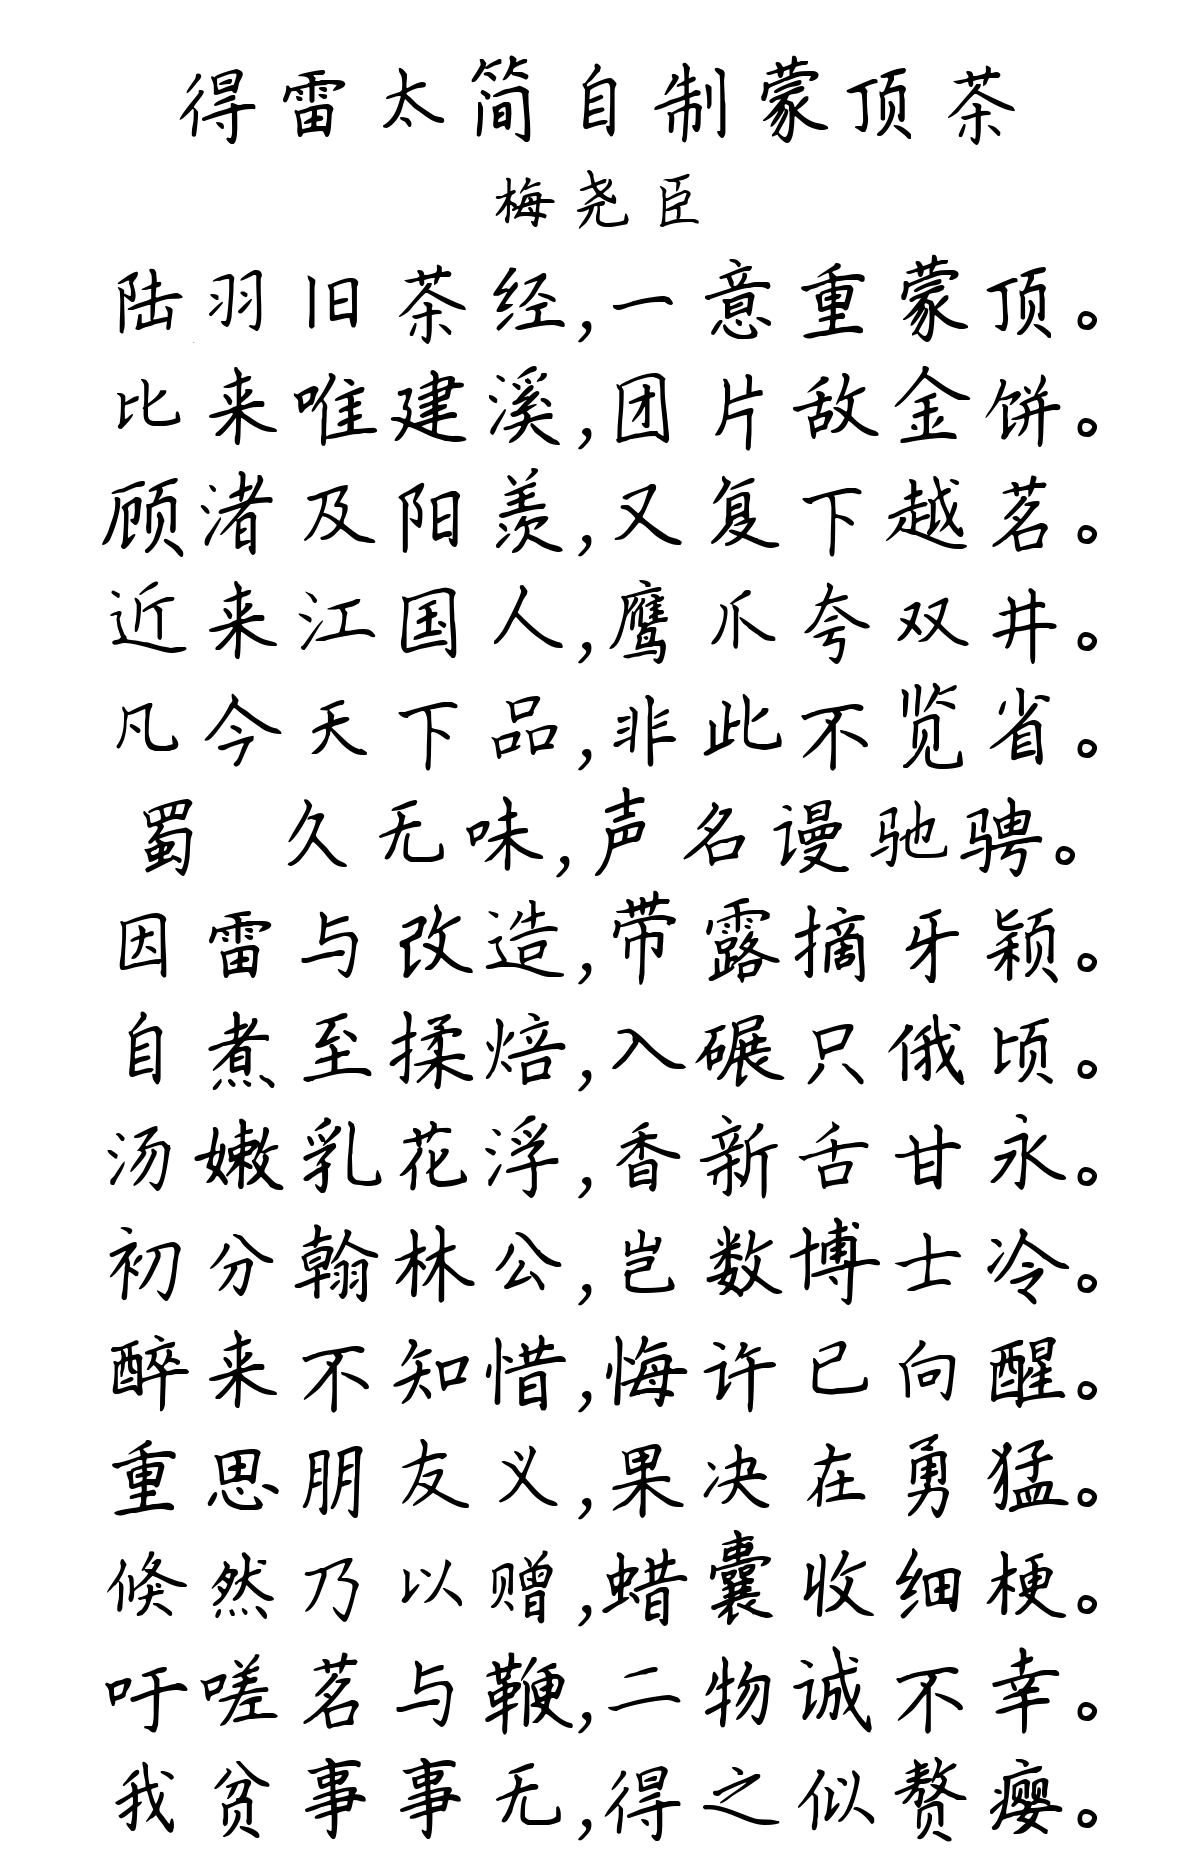 得雷太简自制蒙顶茶
梅尧臣
陆羽旧茶经,一意重蒙顶。
比来唯建溪,团片敌金饼。
顾渚及阳羡,又复下越茗。
近来江国人,鹰爪夸双井。
凡今天下品,非此不览省。
蜀 久无味,声名谩驰骋。
因雷与改造,带露摘牙颖。
自煮至揉焙,入碾只俄顷。
汤嫩乳花浮,香新舌甘永。
初分翰林公,岂数博士冷。
醉来不知惜,悔许已向醒。
重思朋友义,果决在勇猛。
倏然乃以赠,蜡囊收细梗。
吁嗟茗与鞭,二物诚不幸。
我贫事事无,得之似赘瘿。